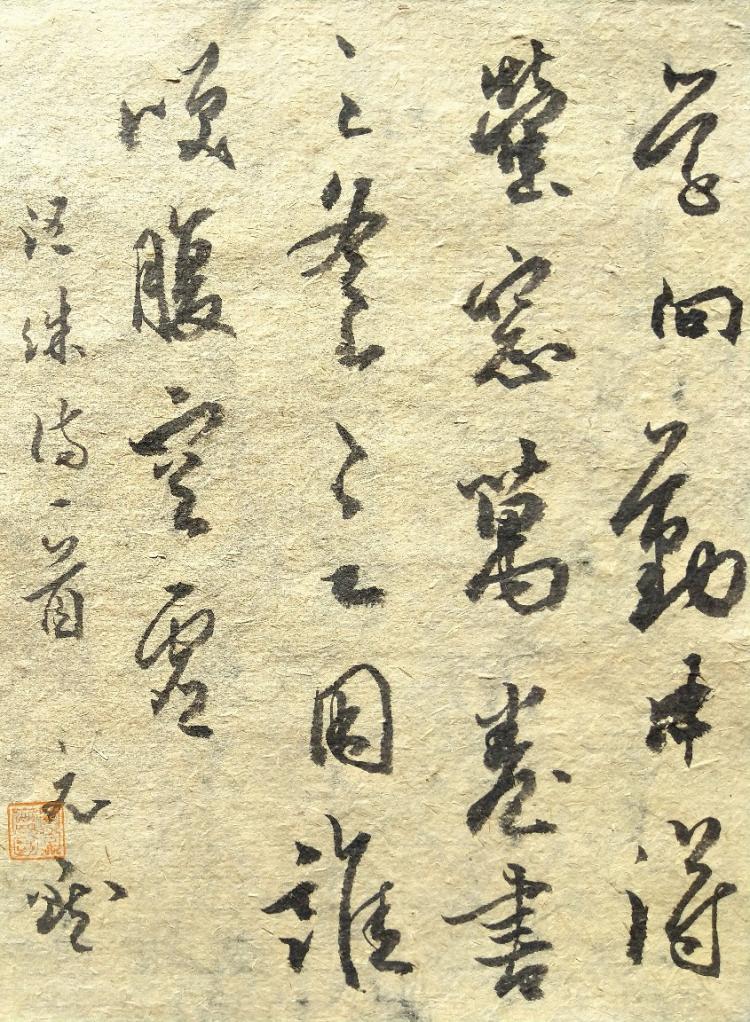 學問勤中得
螢窗萬卷書
三冬今足用誰
咲腹空虛
汪洙詩一首